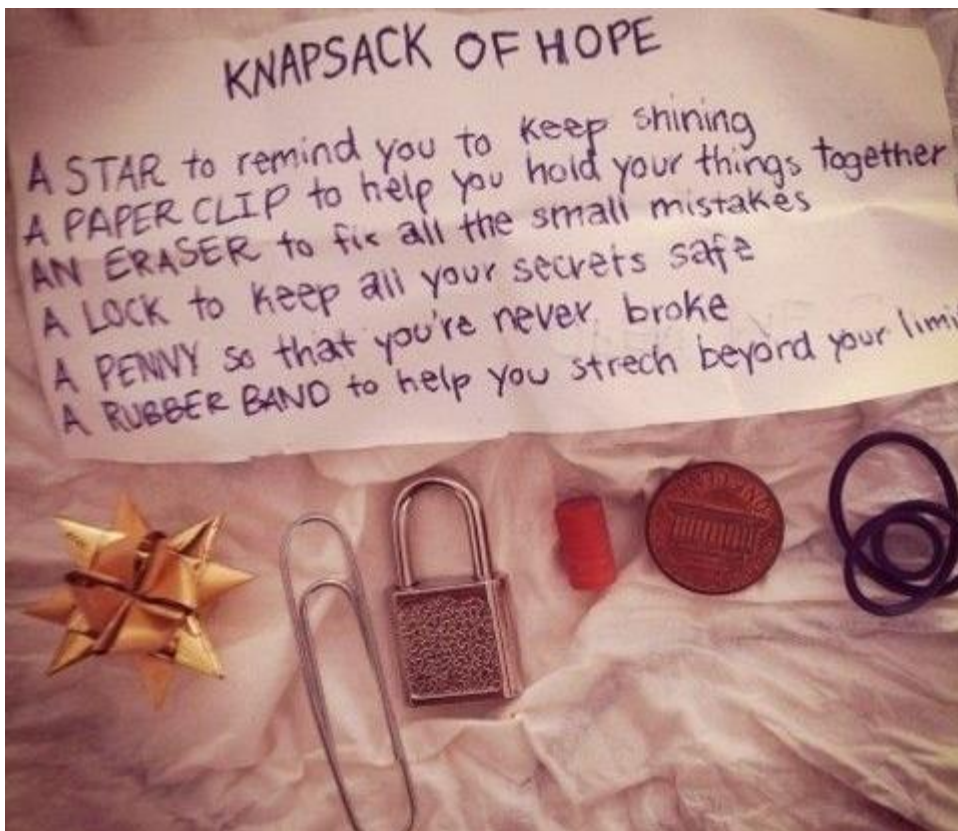 KNAPSACK OF HOPE
A STAR to remind you to keep shining
A PAPER CLIP to help you hold your things together
AN ERASER to fix all the small mistakes
A LOCK to keep all your secrets safe
A PENNY so that you're never broke
A RUBBER BAND to help you strech beyord your limi